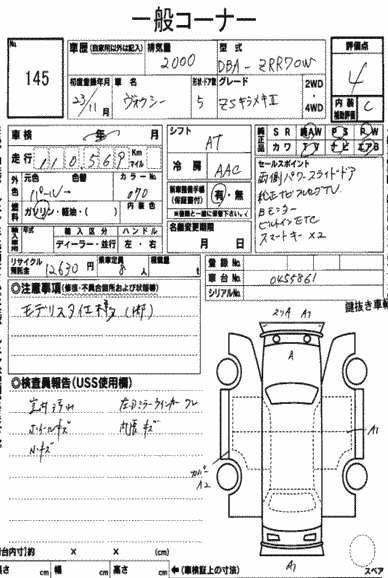 一般コーナー
No.
145
車歴 (自家用以外は記入)
排気量
2000
型式
DBA-ZRR70W
評価点
4
初度登録年月
23/11月
車名
ヴォクシー
形状・ドア数
5
グレード
ZSキラメキⅡ
2WD
4WD
内装補助評価
C
車検
年 月
シフト
AT
純正品
SR AW PS PW
カワ TV ナビ エアB
走行
110569
Km
マイル
冷房
AAC
セールスポイント
両側パワースライドドア
純正ナビフルセグTV
Bモニター
ビルトインETC
スマートキー×2
外色
元色
パール
色替
カラーNo.
070
内装色
燃料
ガソリン・軽油・( )
新車整備手帳
(保証書付)
有・無
※書類と一緒に保管下さい。
輸入車
年式
輸入区分
ディーラー・並行
ハンドル
左・右
名義変更期限
月 日
リサイクル預託金
12630円
乗車定員
8人
積載量
t
登録No.
車台No.
0455861
シリアルNo.
◎注意事項(修復・不具合箇所および状態等)
モデリスタ仕様(1部)
鍵抜き車輌
◎検査員報告(USS使用欄)
ホイールキズ
内張キズ
A1
A
A1
A2
A1
スペア
台内寸)約 × × (cm)
長さ cm 幅 cm 高さ cm
←(車検証上の寸法)